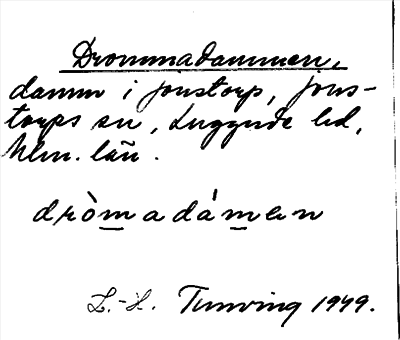 Drommadammen,
damm i Jonstorp, Jons-
torps sn, Luggude hd,
Mlm. län.
dròmadámen
L.-H. Tunving 1949.